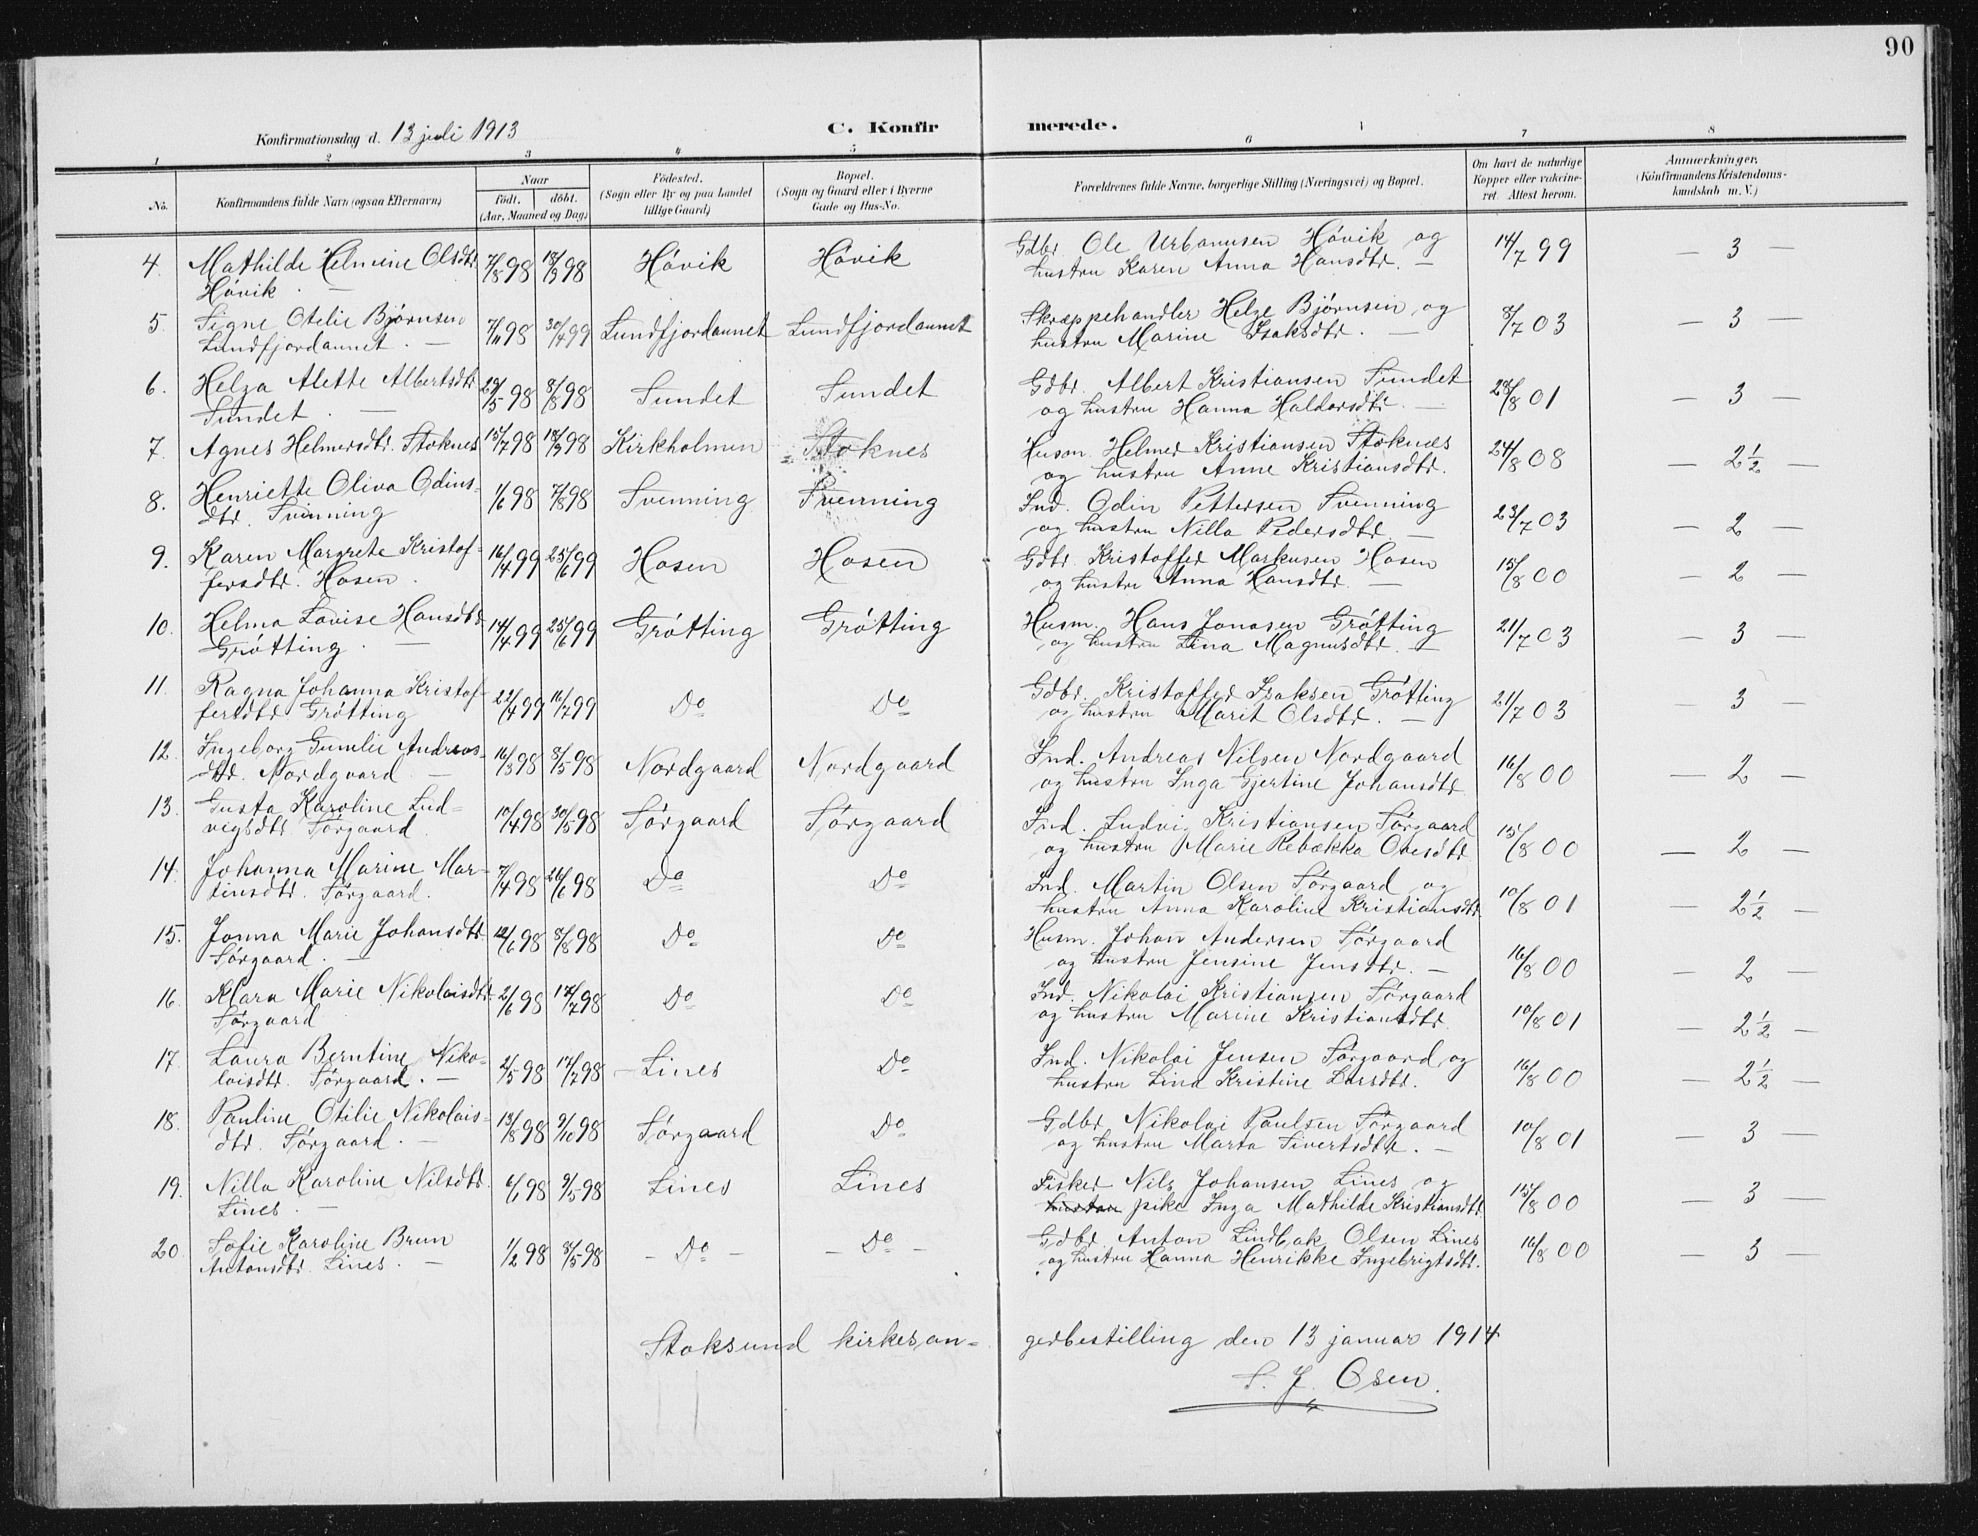 90
Konfirmationsdag d. 13 juli 1913
C. Konfirmerede.
1 2 3 4 5 6 7 8
No. Konfirmandens fulde Navn (ogsaa Efternavn) Naar født. døbt. (Aar, Maaned og Dag) Fødested. (Sogn eller By og paa Landet tillige Gaard) Bopæl. (Sogn og Gaard eller i Byerne Gade og Hus-No. Forældrenes fulde Navne, borgerlige Stilling (Næringsvei) og Bopæl. Om havt de naturlige Kopper eller vakcineret. Attest herom. Anmærkninger. (Konfirmandens Kristendomskundskab m. V.)
4. Mathilde Helmine Olsdtr 7/8 98 18/9 98 Hóvik Hóvik Gdbr. Ole Urbanusen Hóvik og 14/7 99 — 3 —
Hóvik. — hustru Karen Anna Hansdtr. —
5. Signe Otelie Bjørnsen 7/11 98 30/4 99 Lundfjordaunet Lundfjordaunet Skræppehandler Helge Bjørnsen og 8/7 03 — 3 —
Lundfjordaunet. — hustru Marine Isaksdtr. —
6. Helga Alette Albertsdtr 29/5 98 8/8 98 Sundet Sundet Gdbr. Albert Kristiansen Sundet 28/8 01 — 3 —
Sundet. — og hustru Hanna Haldorsdtr. —
7. Agnes Helmersdtr. Stoknes 15/7 98 18/9 98 Kirkholmen Stoknes Husm. Helmer Kristiansen Stoknes 24/8 08 — 2½ —
og hustru Anne Kristiansdtr.
8. Henriette Oliva Odins- 1/6 98 7/8 98 Svenning Svenning Ind. Odin Pettersen Svenning 23/7 03 — 2 —
dtr. Svenning og hustru Nilla Pedersdtr. —
9. Karen Margrete Kristof- 16/4 99 25/6 99 Hosen Hosen Gdbr. Kristoffer Markusen Hosen 15/8 00 — 2 —
fersdtr. Hosen. og hustru Anna Hansdtr. —
10. Helma Lovise Hansdtr 14/4 99 25/6 99 Grótting Grótting Husm. Hans Jonasen Grótting 21/7 03 — 3 —
Grótting. — og hustru Lina Magnusdtr. —
11. Ragna Johanna Kristof- 22/4 99 16/7 99 Do Do Gdbr. Kristoffer Isaksen Grótting 21/7 03 — 3 —
fersdtr Grótting og hustru Marit Olsdtr. —
12. Ingeborg Gunelie Andreas- 16/3 98 8/5 98 Nordgaard Nordgaard Ind. Andreas Nilsen Nordgaard 16/8 00 — 2 —
dtr. Nordgaard — og hustru Inga Gjertine Johansdtr
13. Gusta Karoline Lud- 10/4 98 30/5 98 Sórgaard Sórgaard Ind. Ludvig Kristiansen Sórgaard 15/8 00 — 2 —
vigsdtr Sórgaard. og hustru Marie Rebækka Ovesdtr
14. Johanna Marine Mar- 7/4 98 26/6 98 Do Do Ind. Martin Olsen Sórgaard og 10/8 01 — 2½ —
tinsdtr. Sórgaard. hustru Anna Karoline Kristiansdtr
15. Jonna Marie Johansdtr 12/6 98 8/8 98 Do Do Husm. Johan Andersen Sórgaard 16/8 00 — 2 —
Sórgaard. — og hustru Jensine Jensdtr. —
16. Klara Marie Nikolaisdtr 2/6 98 17/7 98 Do Do Ind. Nikolai Kristiansen Sórgaard 10/8 01 — 2½ —
Sórgaard og hustru Marine Kristiansdtr.
17. Laura Berntine Niko- 2/5 98 17/7 98 Lines Do Ind. Nikolai Jensen Sórgaard og 16/8 00 — 2½ —
laisdtr. Sórgaard. — hustru Lina Kristine Larsdtr.
18. Pauline Otilie Nikolais- 13/8 98 9/10 98 Sórgaard Do Gdbr Nikolai Paulsen Sórgaard 10/8 01 — 3 —
dtr. Sórgaard. — og hustru Marta Sivertsdtr. —
19. Nilla Karoline Nilsdtr. 6/1 98 9/5 98 Lines Lines Fisker Nils Johansen Lines og 15/8 00 — 3 —
Lines. — hustru pike Inga Mathilde Kristiansdtr
20. Sofie Karoline Brun 1/2 98 8/5 98 — Do — — Do — Gdbr Anton Lindbak Olsen Lines 16/8 00 — 3
Antonsdtr. Lines. — og hustru Hanna Henrikke Ingebrigtsdtr.
Stoksund kirkesangerbestilling den 13 januar 1914
S. J. Osen.